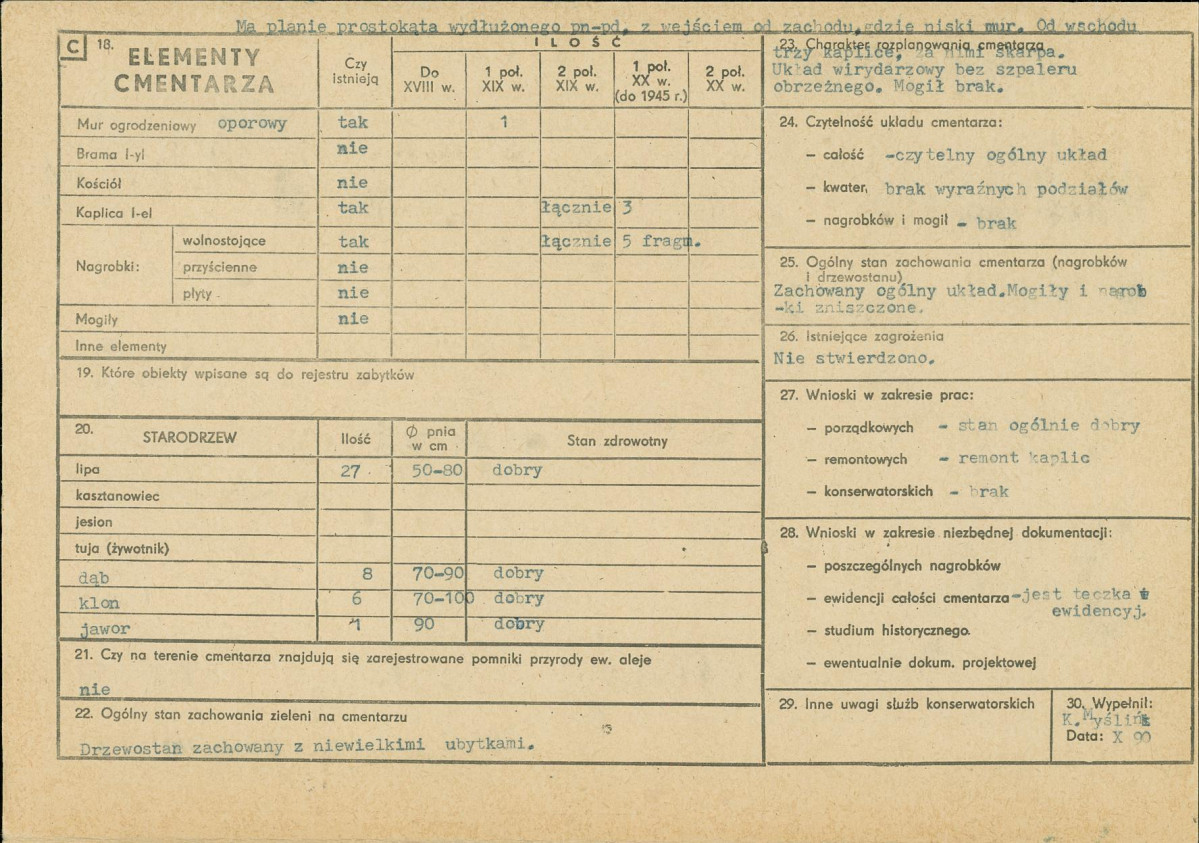 Ma planie prostokąta wydłużonego pn-pd, z wejściem od zachodu,gdzie niski mur. Od wschodu
C 18. ELEMENTY CMENTARZA
Czy istnieją
ILOŚĆ
Do XVIII w.
1 poł. XIX w.
2 poł. XIX w.
1 poł. XX w. (do 1945 r.)
2 poł. XX w.
Mur ogrodzeniowy oporowy tak 1
Brama I-yl nie
Kościół nie
Kaplica I-el tak łącznie 3
Nagrobki:
wolnostojące tak łącznie 5 fragm.
przyścienne nie
płyty nie
Mogiły nie
Inne elementy
19. Które obiekty wpisane są do rejestru zabytków
20. STARODRZEW Ilość Ø pnia w cm Stan zdrowotny
lipa 27 50-80 dobry
kasztanowiec
jesion
tuja (żywotnik)
dąb 8 70-90 dobry
klon 6 70-100 dobry
jawor 1 90 dobry
21. Czy na terenie cmentarza znajdują się zarejestrowane pomniki przyrody ew. aleje
nie
22. Ogólny stan zachowania zieleni na cmentarzu
Drzewostan zachowany z niewielkimi ubytkami.
23. Charakter rozplanowania cmentarza
trzy kaplice, za nimi skarpa.
Układ wirydarzowy bez szpaleru
obrzeżnego. Mogił brak.
24. Czytelność układu cmentarza:
– całość -czytelny ogólny układ
– kwater, brak wyraźnych podziałów
– nagrobków i mogił - brak
25. Ogólny stan zachowania cmentarza (nagrobków
i drzewostanu)
Zachowany ogólny układ.Mogiły i nagrob
-ki zniszczone.
26. Istniejące zagrożenia
Nie stwierdzono.
27. Wnioski w zakresie prac:
– porządkowych - stan ogólnie dobry
– remontowych - remont kaplic
– konserwatorskich - brak
28. Wnioski w zakresie niezbędnej dokumentacji:
– poszczególnych nagrobków
– ewidencji całości cmentarza -jest teczka
ewidencyj.
– studium historycznego.
– ewentualnie dokum. projektowej
29. Inne uwagi służb konserwatorskich
30. Wypełnił:
K.
Data: X 90